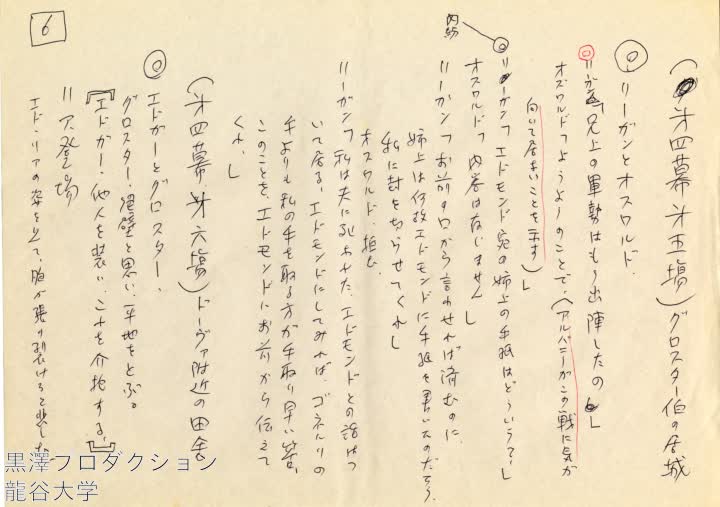 6
(第四幕 第五場) グロスター伯の居城
◎ リーガンとオスワルド.
◎ リーガン「兄上の軍勢はもう出陣したの」
オズワルド「ようよーのことで、(アルバニーがこの戦に気が
向いて居ないことを示す)」
内紛
◎ リーガン「エドモンド宛の姉上の手紙はどういうて、」
オスワルド「内容は存じません」
リーガン「お前の口から言わせれば済むのに、
姉上は何故エドモンドに手紙を書いたのだろう、
私に封を切らせてくれ」
オスワルド、拒む、
リーガン「私は夫に死なれた、エドモンドとの話はつ
いて居る、エドモンドにしてみれば、ゴネルリの
手よりも私の手を取る方が手取り早い筈、
このことを、エドモンドにお前から伝えて
くれ、」
(第四幕 第六場) ドーヴァ附近の田舎
◎ エドガーとグロスター、
グロスター、絶壁と思い、平地をとぶ。
【エドガー、他人を装い、これを介抱する、】
リア登場
エド、リアの姿を見て、胸が張り裂けると悲しむ
黒澤プロダクション
龍谷大学